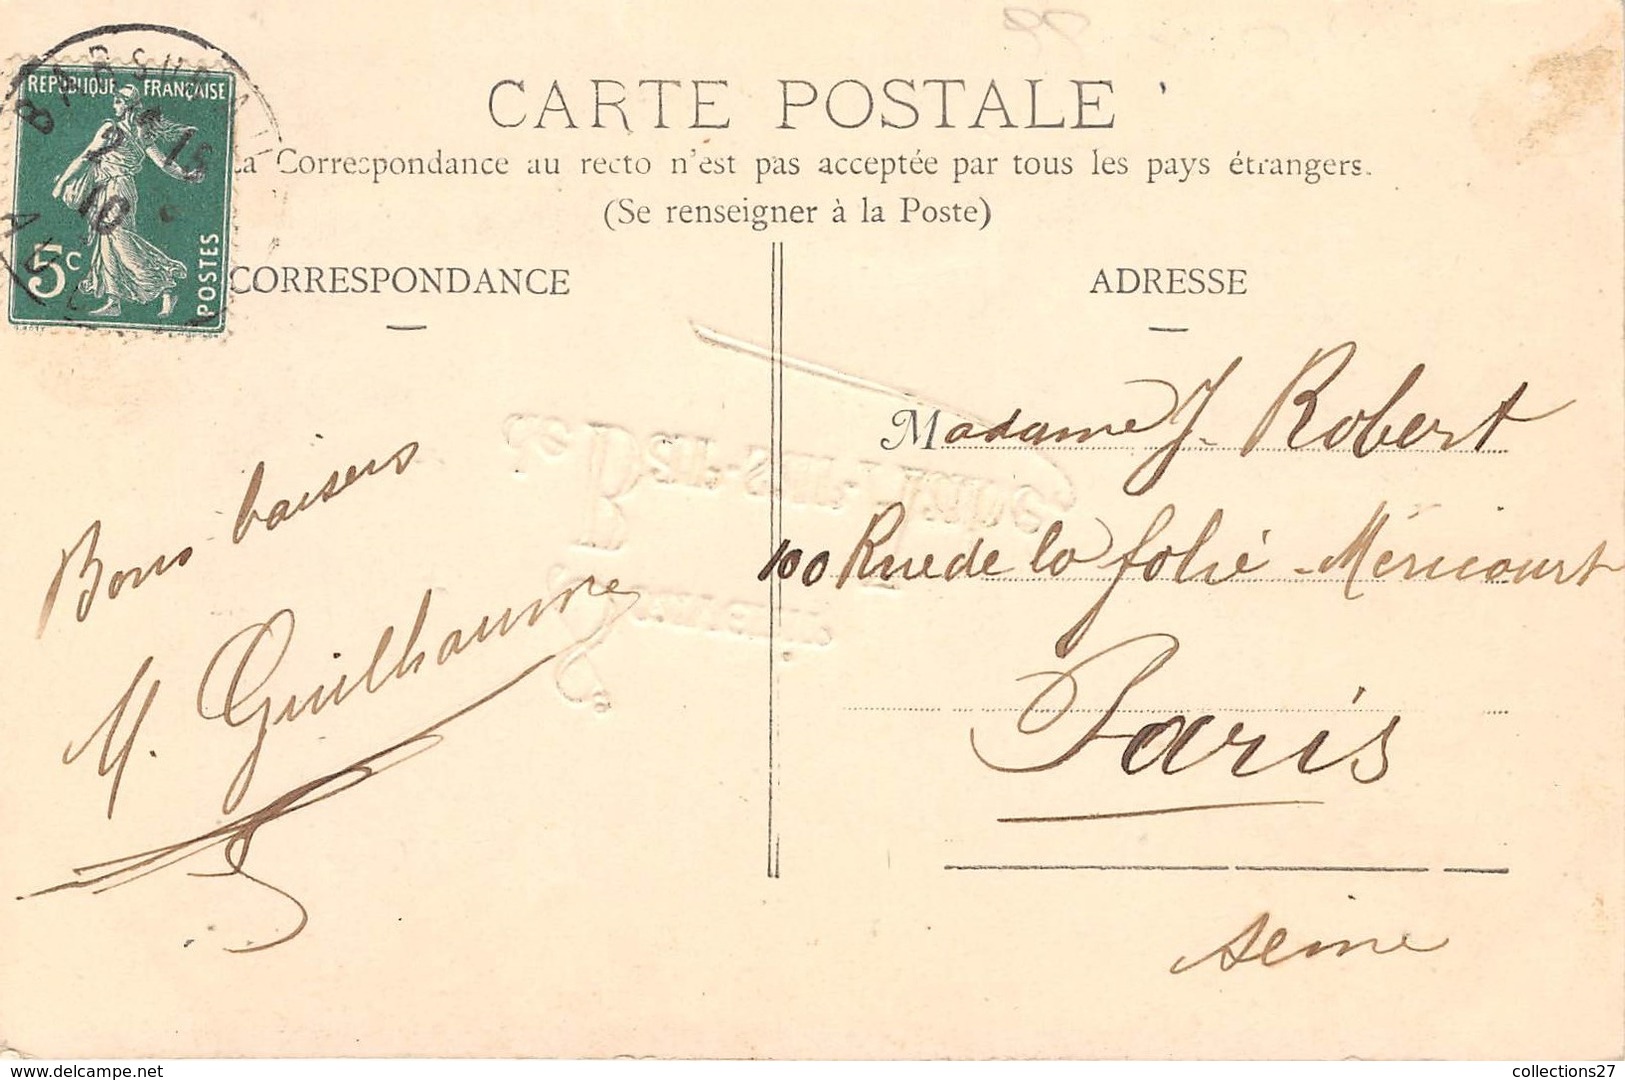 RÉPUBLIQUE FRANÇAISE
5c
POSTES
BAR SUR A
2
15
10
AUBE
CARTE POSTALE
La Correspondance au recto n'est pas acceptée par tous les pays étrangers.
(Se renseigner à la Poste)
CORRESPONDANCE
ADRESSE
Bons baisers
M. Guilhaume
Madame J. Robert
100 Rue de la folie-Méricourt
Paris
Seine
delcampe.net
collections27